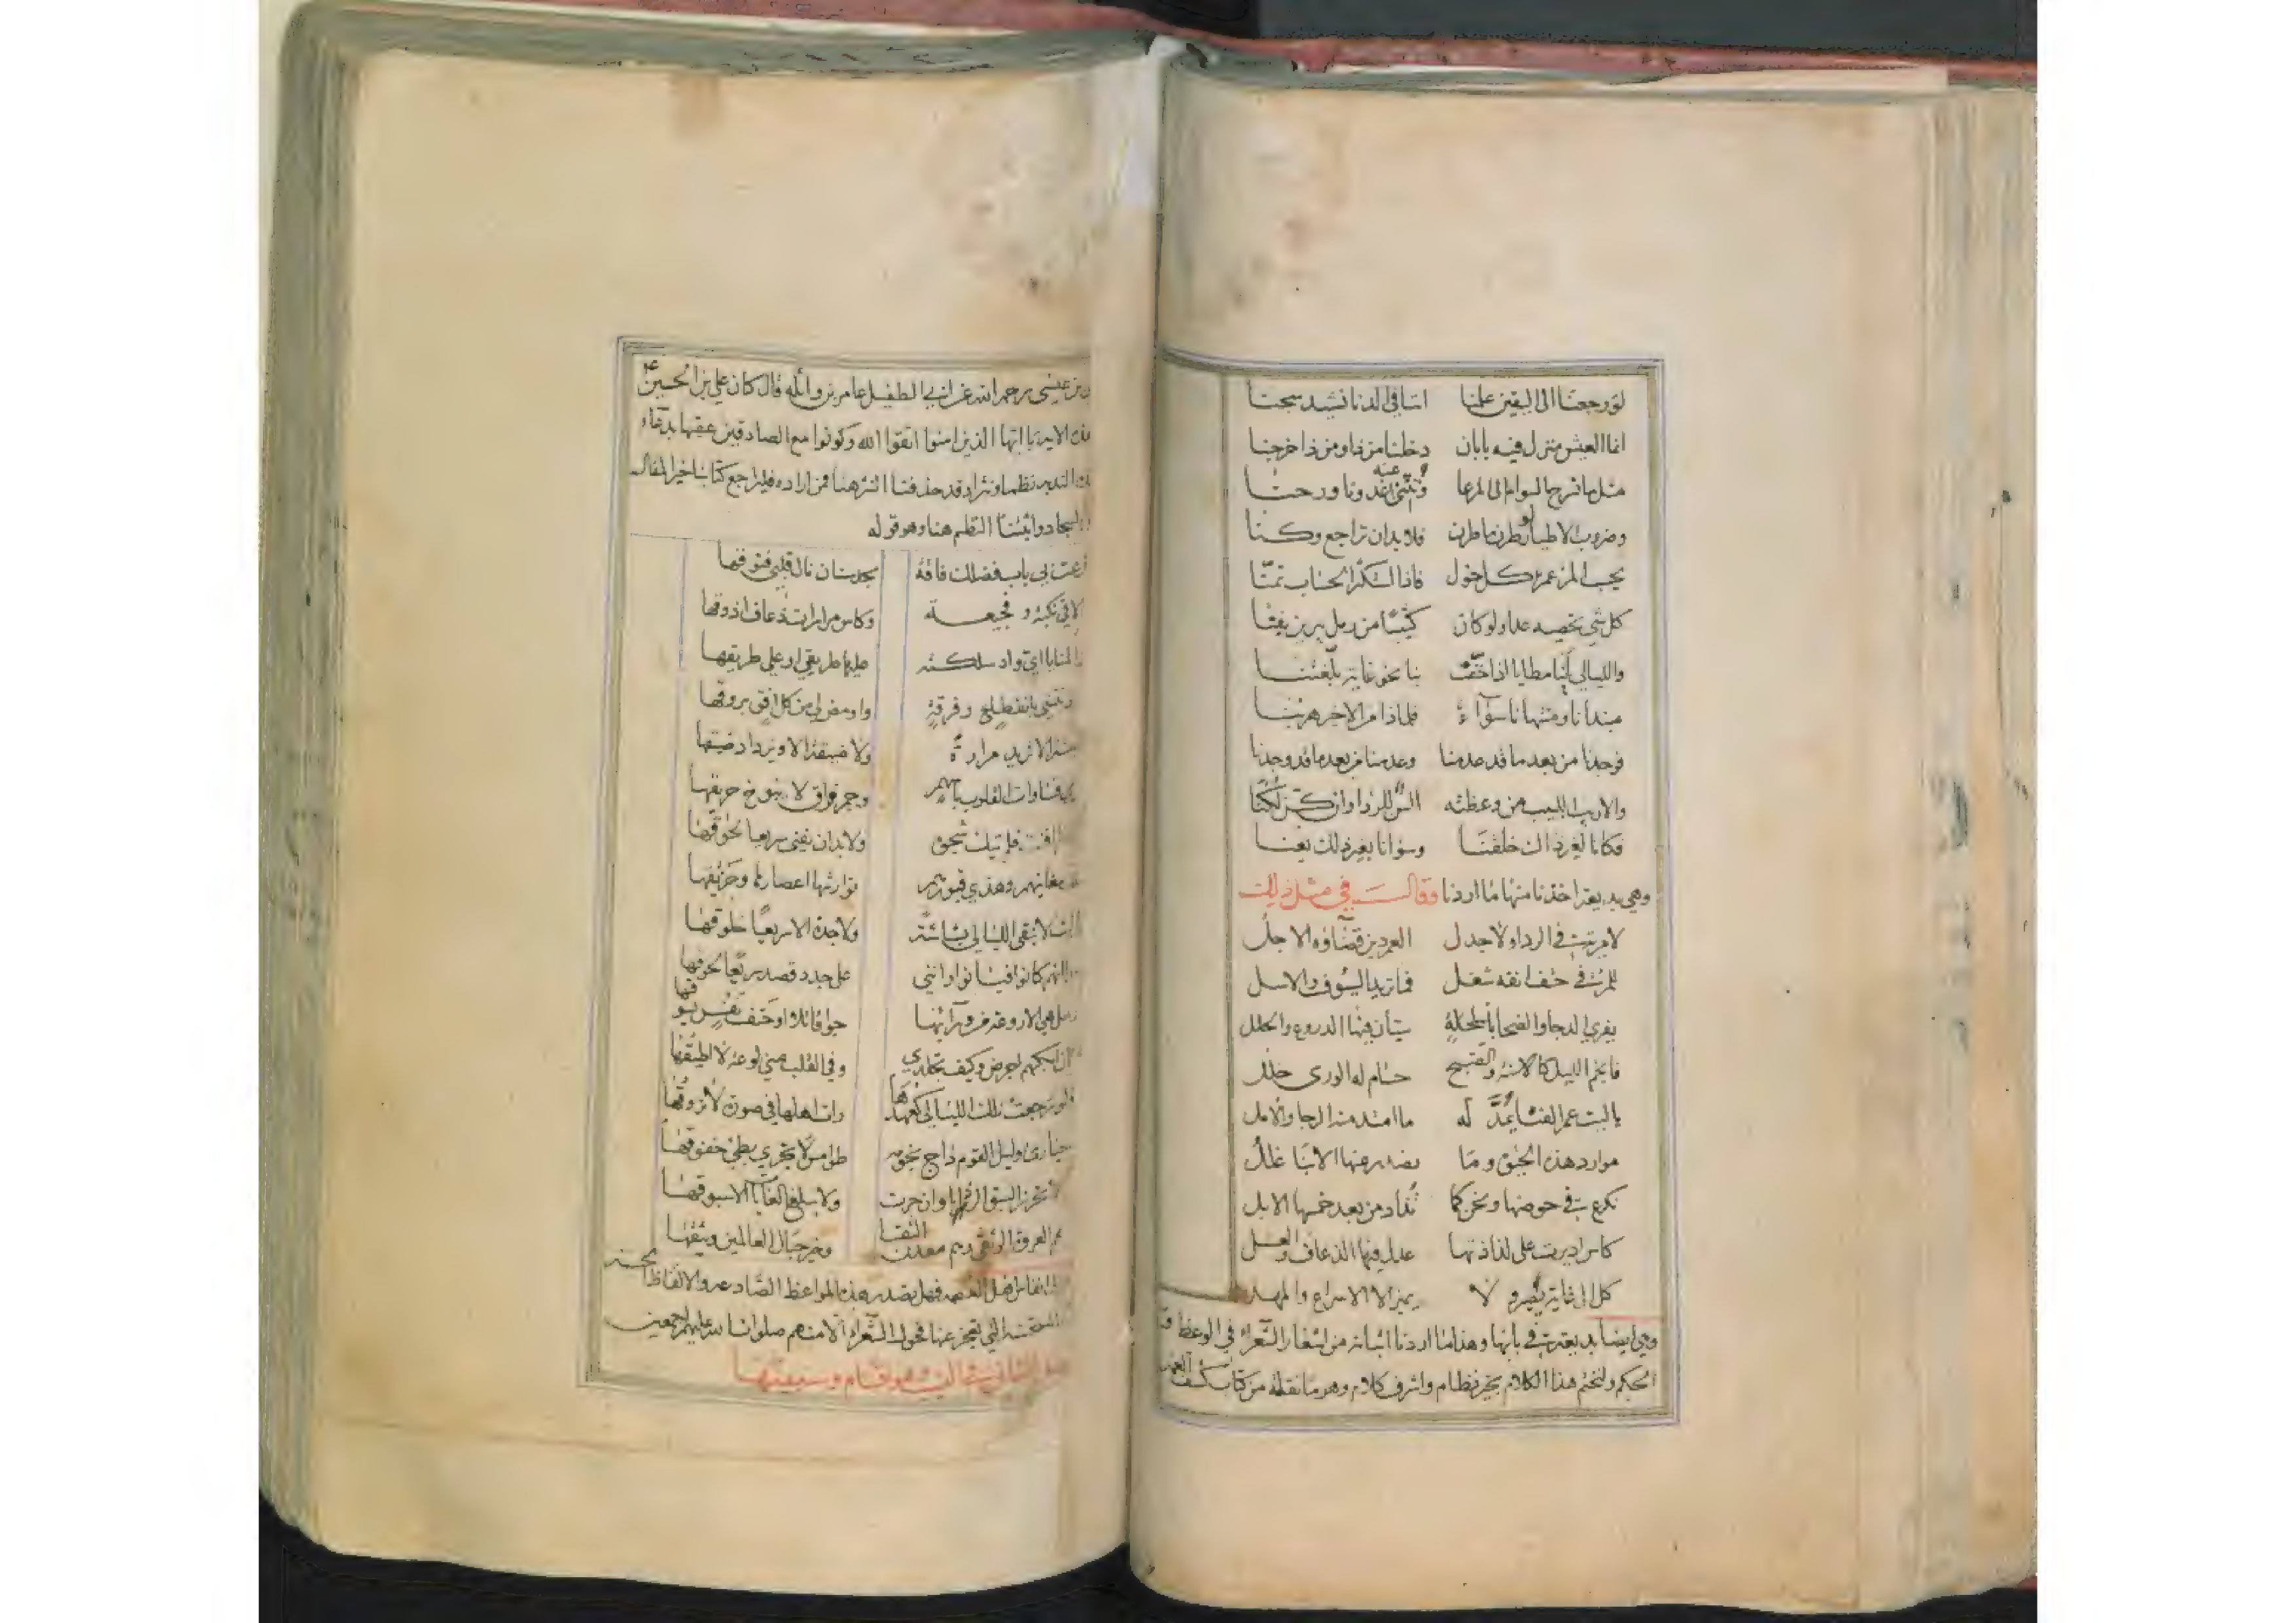 لو رجعنا الى اليقين علمنا اننا في الدنا نشيد سجنا
انما العيش منزل فيه بابان دخلنا من ذا ومن ذا خرجنا
مثل ما تسرح السوام الى المرعا وتنثني عنه غدونا ورحنا
وضروب الاطيار لو طرن ما طرن فلا بد ان تراجع وكنا
يحسب المرء عمره كل حول فاذا استكثر الحساب تمنا
كل شي نحصيه علما ولو كان كثيبا من رمل يبرين يفنا
والليالي لنا مطايا اذا خفت بنا نحو غاية بلغتنا
مبتدانا ومنتهانا سوآء فلماذا من الاخير هربنا
فوجدنا من بعد ما قد عدمنا وعدمنا من بعد ما قد وجدنا
والاريب اللبيب من وعظته السن للردا وان كن لكنا
فكانا لغير ذاك خلقنا وسوانا بغير ذلك يعنا
وهي بديعة اخذنا منها ما اردنا وقال في مثل ذلك
لا مرية في الردا ولا جدل العمر دين قضاؤه الاجل
للمرء في حتف انفه شغل فما تريد السيوف والاسل
يفري الدجا والضحا باسلحة سيان فيها الدروع والحلل
فانجم الليل كالاسنة والصبح حسام له الورى خلل
يا ليت عمر الفتا يمد له ما امتد منه الرجا والامل
موارد هذه الحيوة وما يصدر عنها الا بنا غلل
نكرع في حوضها ونحن كما تذاد من بعد خمسها الابل
كاس اديرت على لذاذتها عدل فيها الذعاف والعسل
كل الى غاية يصير ولا يميز الا الاسراع والمهل
وهي ايضا بديعة في بابها وهذا ما اردنا اثباته من اشعار الشعراء في الوعظ
الحكم ولنختم هذا الكلام بخير نظام واشرف كلام وهو ما نقله من كتاب كشف الغمه
بن عيسى رحمه الله عن ابي الطفيل عامر بن واثله قال كان علي بن الحسين ع
هذه الاية يا ايها الذين امنوا اتقوا الله وكونوا مع الصادقين عقبها بدعاء
نظما ونثرا وقد حذفنا النثر هنا فمن اراده فليراجع كتابنا خير المقال
السجاد واثبتنا النظم هنا وهو قوله
قرعت لي باب فضلك فاقة بحد سنان نال قلبي فتوقها
الاقي نكبة وفجيعة وكاس مرارات ذعاف اذوقها
المنايا اي واد سلكته عليها طريقي او علي طريقها
بتقطيع وفرقة واومض لي من كل افق بروقها
الا تزيد مرارة ولا ضيقة الا ويزداد ضيقها
قساوات القلوب باسهم وجمر فراق لا يبوخ حريقها
ولا بد ان يفنى سريعا لحوقها
مغانيهم وهذي قبورهم توارثها اعصارها وحريقها
لا تبقي الليالي بشاشة ولا جدة الا سريعا خلوقها
كانوا فبانوا وانني على جدد قصد سريعا لحوقها
هي الا لوعة من ورآئها جوا قاتل او حتف نفس يسوقها
ابكهم اجرض وكيف تجلدي وفي القلب مني لوعة لا اطيقها
فلو رجعت تلك الليالي كعهدها رات اهلها في صورة لا تروقها
حيارى وليل القوم داج نجومه طوامس لا تجري بطي خفوقها
تحرز السبق الرزايا وان جرت ولا يبلغ الغايات الا سبوقها
هم العروة الوثقى وهم معدن التقا وخير حبال العالمين وثيقها
المواعظ الصادعة والالفاظ الحسنة
التي تعجز عنها فحول الشعراء الا منهم صلوات الله عليهم اجمعين
وهو اقسام وسيفتها